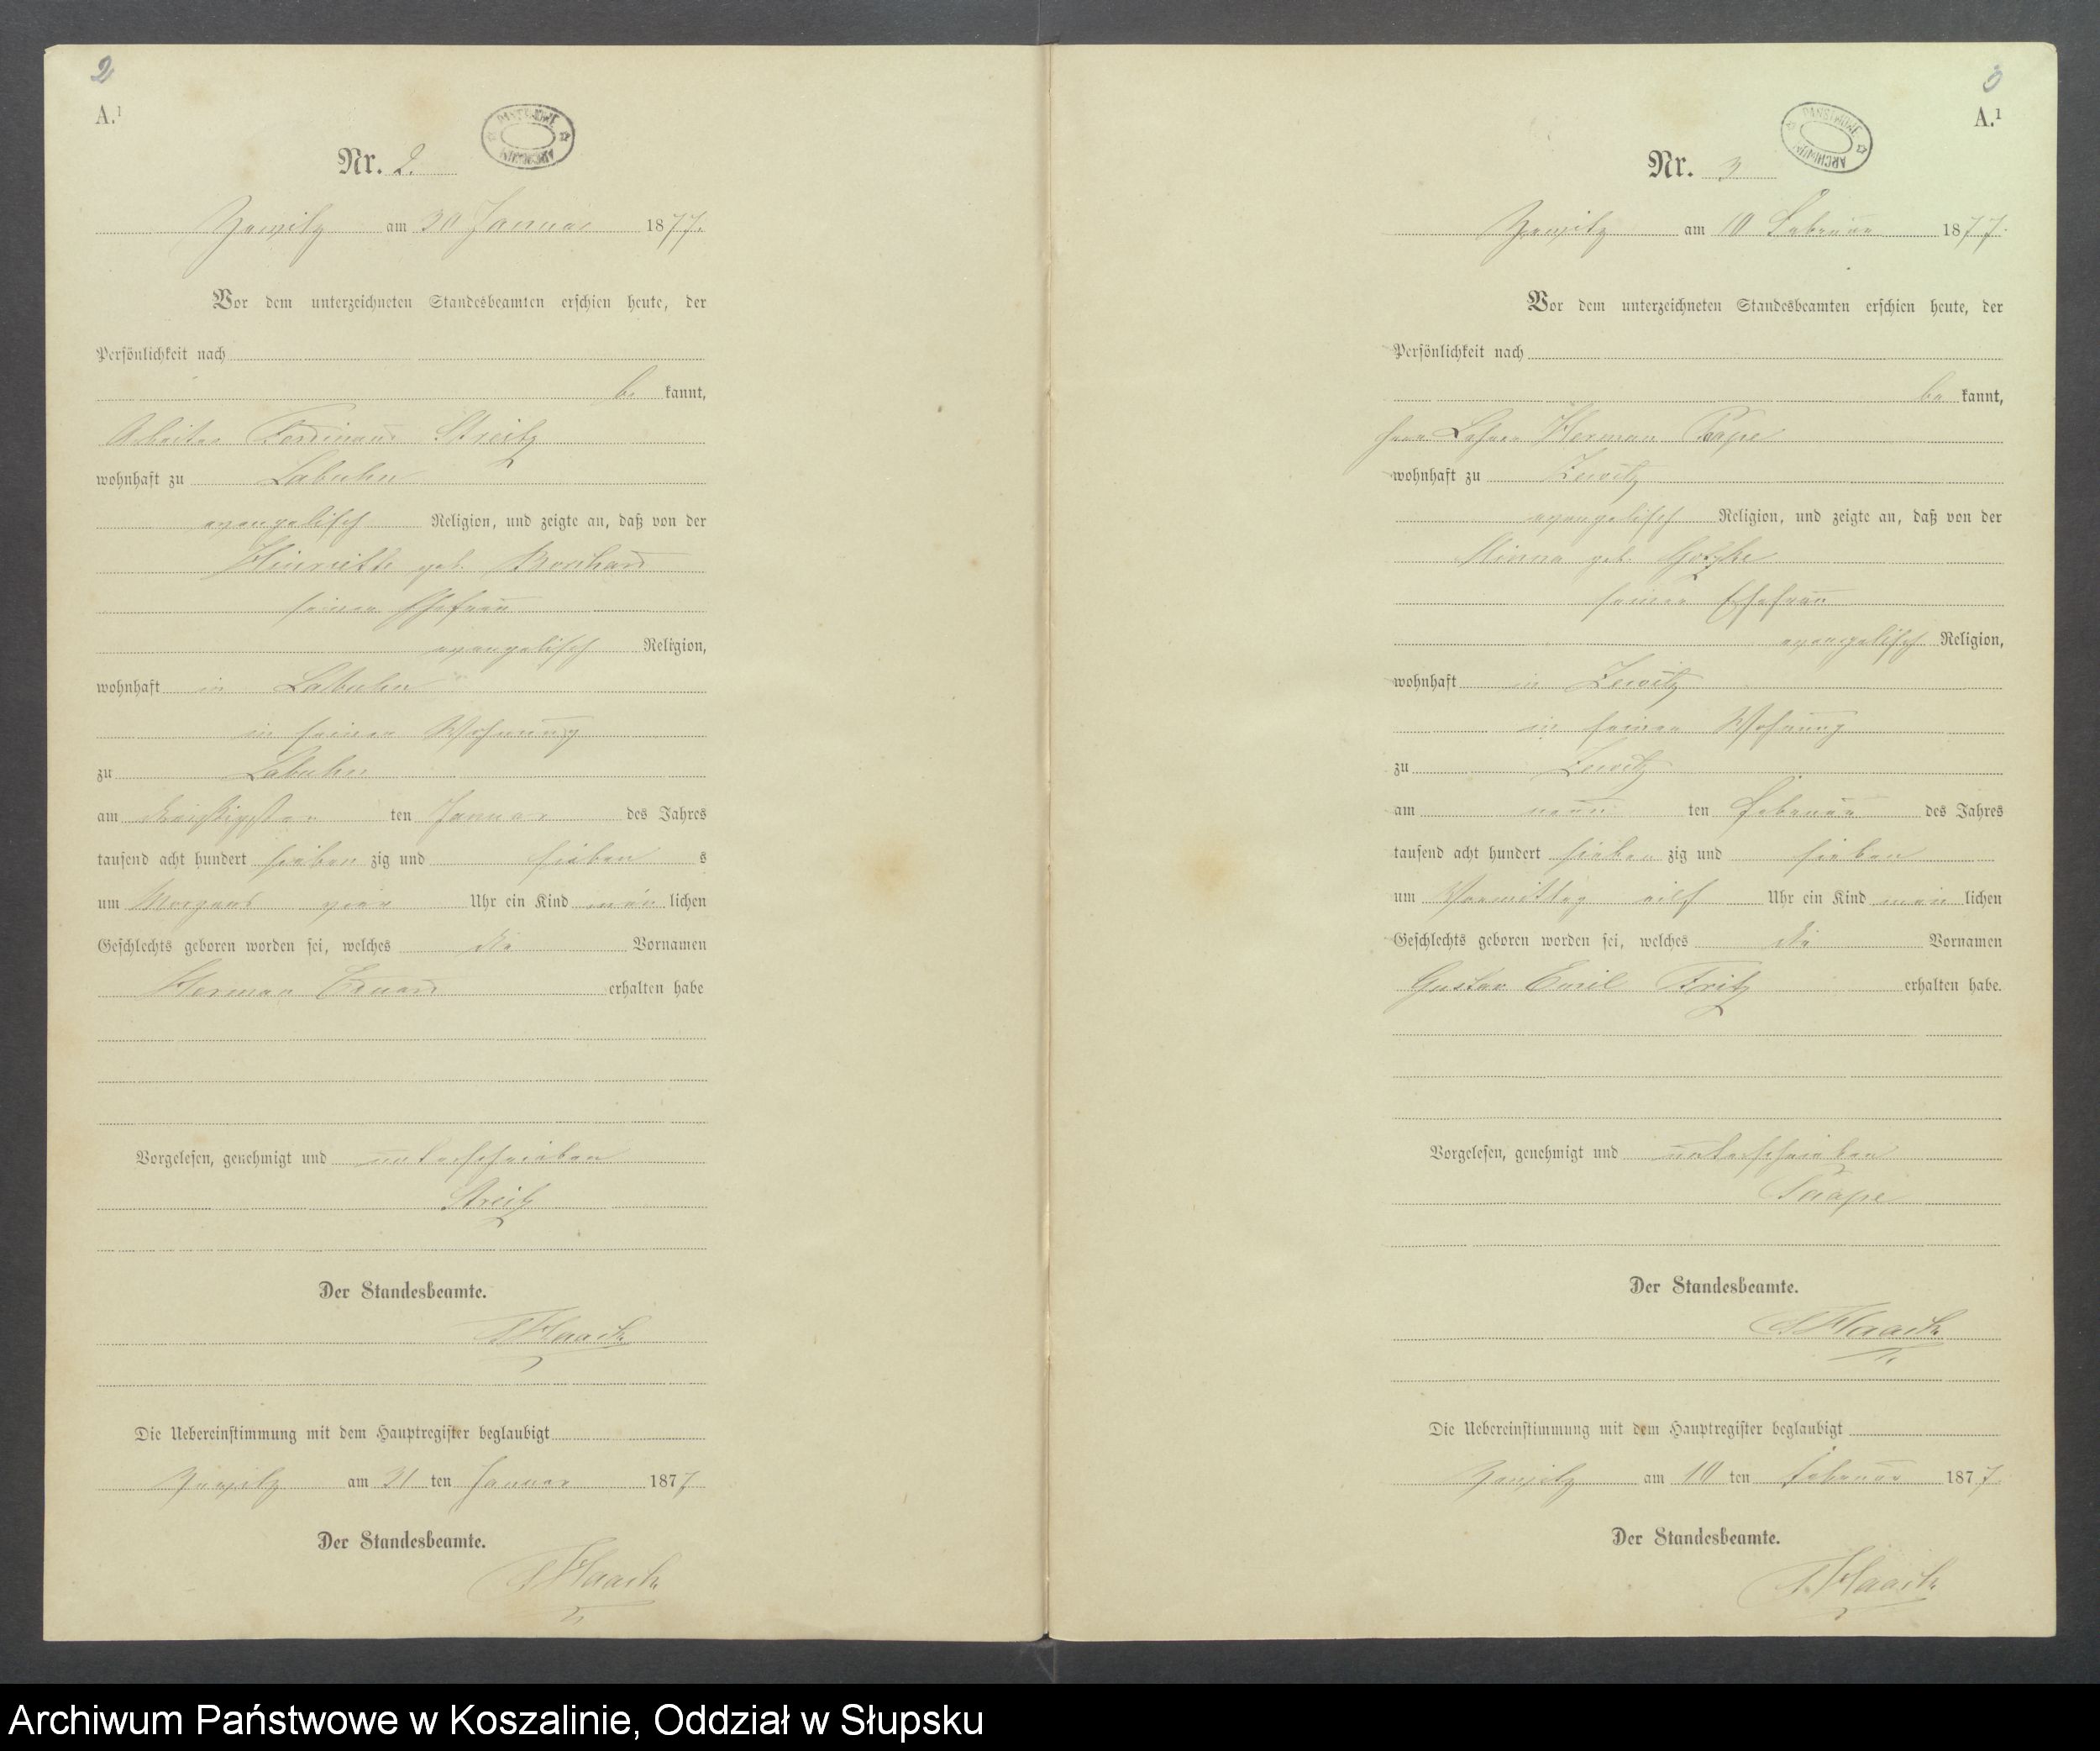 2
A.¹
PAŃSTWOWE
ARCHIWUM
Nr. 2.
am 30 Januar 1877.
Vor dem unterzeichneten Standesbeamten erschien heute, der
Persönlichkeit nach
be kannt,
Arbeiter Ferdinand Streitz
wohnhaft zu Labuhn
evangelisch Religion, und zeigte an, daß von der
Hinriette geb. Borchard
seiner Ehefrau
evangelisch Religion,
wohnhaft in Labuhn
in seiner Wohnung
zu Labuhn
am dreißigsten ten Januar des Jahres
tausend acht hundert sieben zig und sieben s
um Morgens vier Uhr ein Kind män lichen
Geschlechts geboren worden sei, welches die Vornamen
Herman Eduard erhalten habe
Vorgelesen, genehmigt und unterschrieben
Streitz
Der Standesbeamte.
Haack
Die Uebereinstimmung mit dem Hauptregister beglaubigt
am 31 ten Januar 1877
Der Standesbeamte.
Haack
A.¹
PAŃSTWOWE
ARCHIWUM
Nr. 3
am 10 Februar 1877.
Vor dem unterzeichneten Standesbeamten erschien heute, der
Persönlichkeit nach
be kannt,
Herr Lehrer Herman Paape
wohnhaft zu Zewitz
evangelisch Religion, und zeigte an, daß von der
Minna geb.
seiner Ehefrau
evangelisch Religion,
wohnhaft in Zewitz
in seiner Wohnung
zu Zewitz
am neun ten Februar des Jahres
tausend acht hundert sieben zig und sieben
um Vormittag eilf Uhr ein Kind män lichen
Geschlechts geboren worden sei, welches die Vornamen
Gustav Emil Fritz erhalten habe.
Vorgelesen, genehmigt und unterschrieben
Paape
Der Standesbeamte.
Haack
Die Uebereinstimmung mit dem Hauptregister beglaubigt
am 10 ten Februar 1877.
Der Standesbeamte.
Haack
Archiwum Państwowe w Koszalinie, Oddział w Słupsku